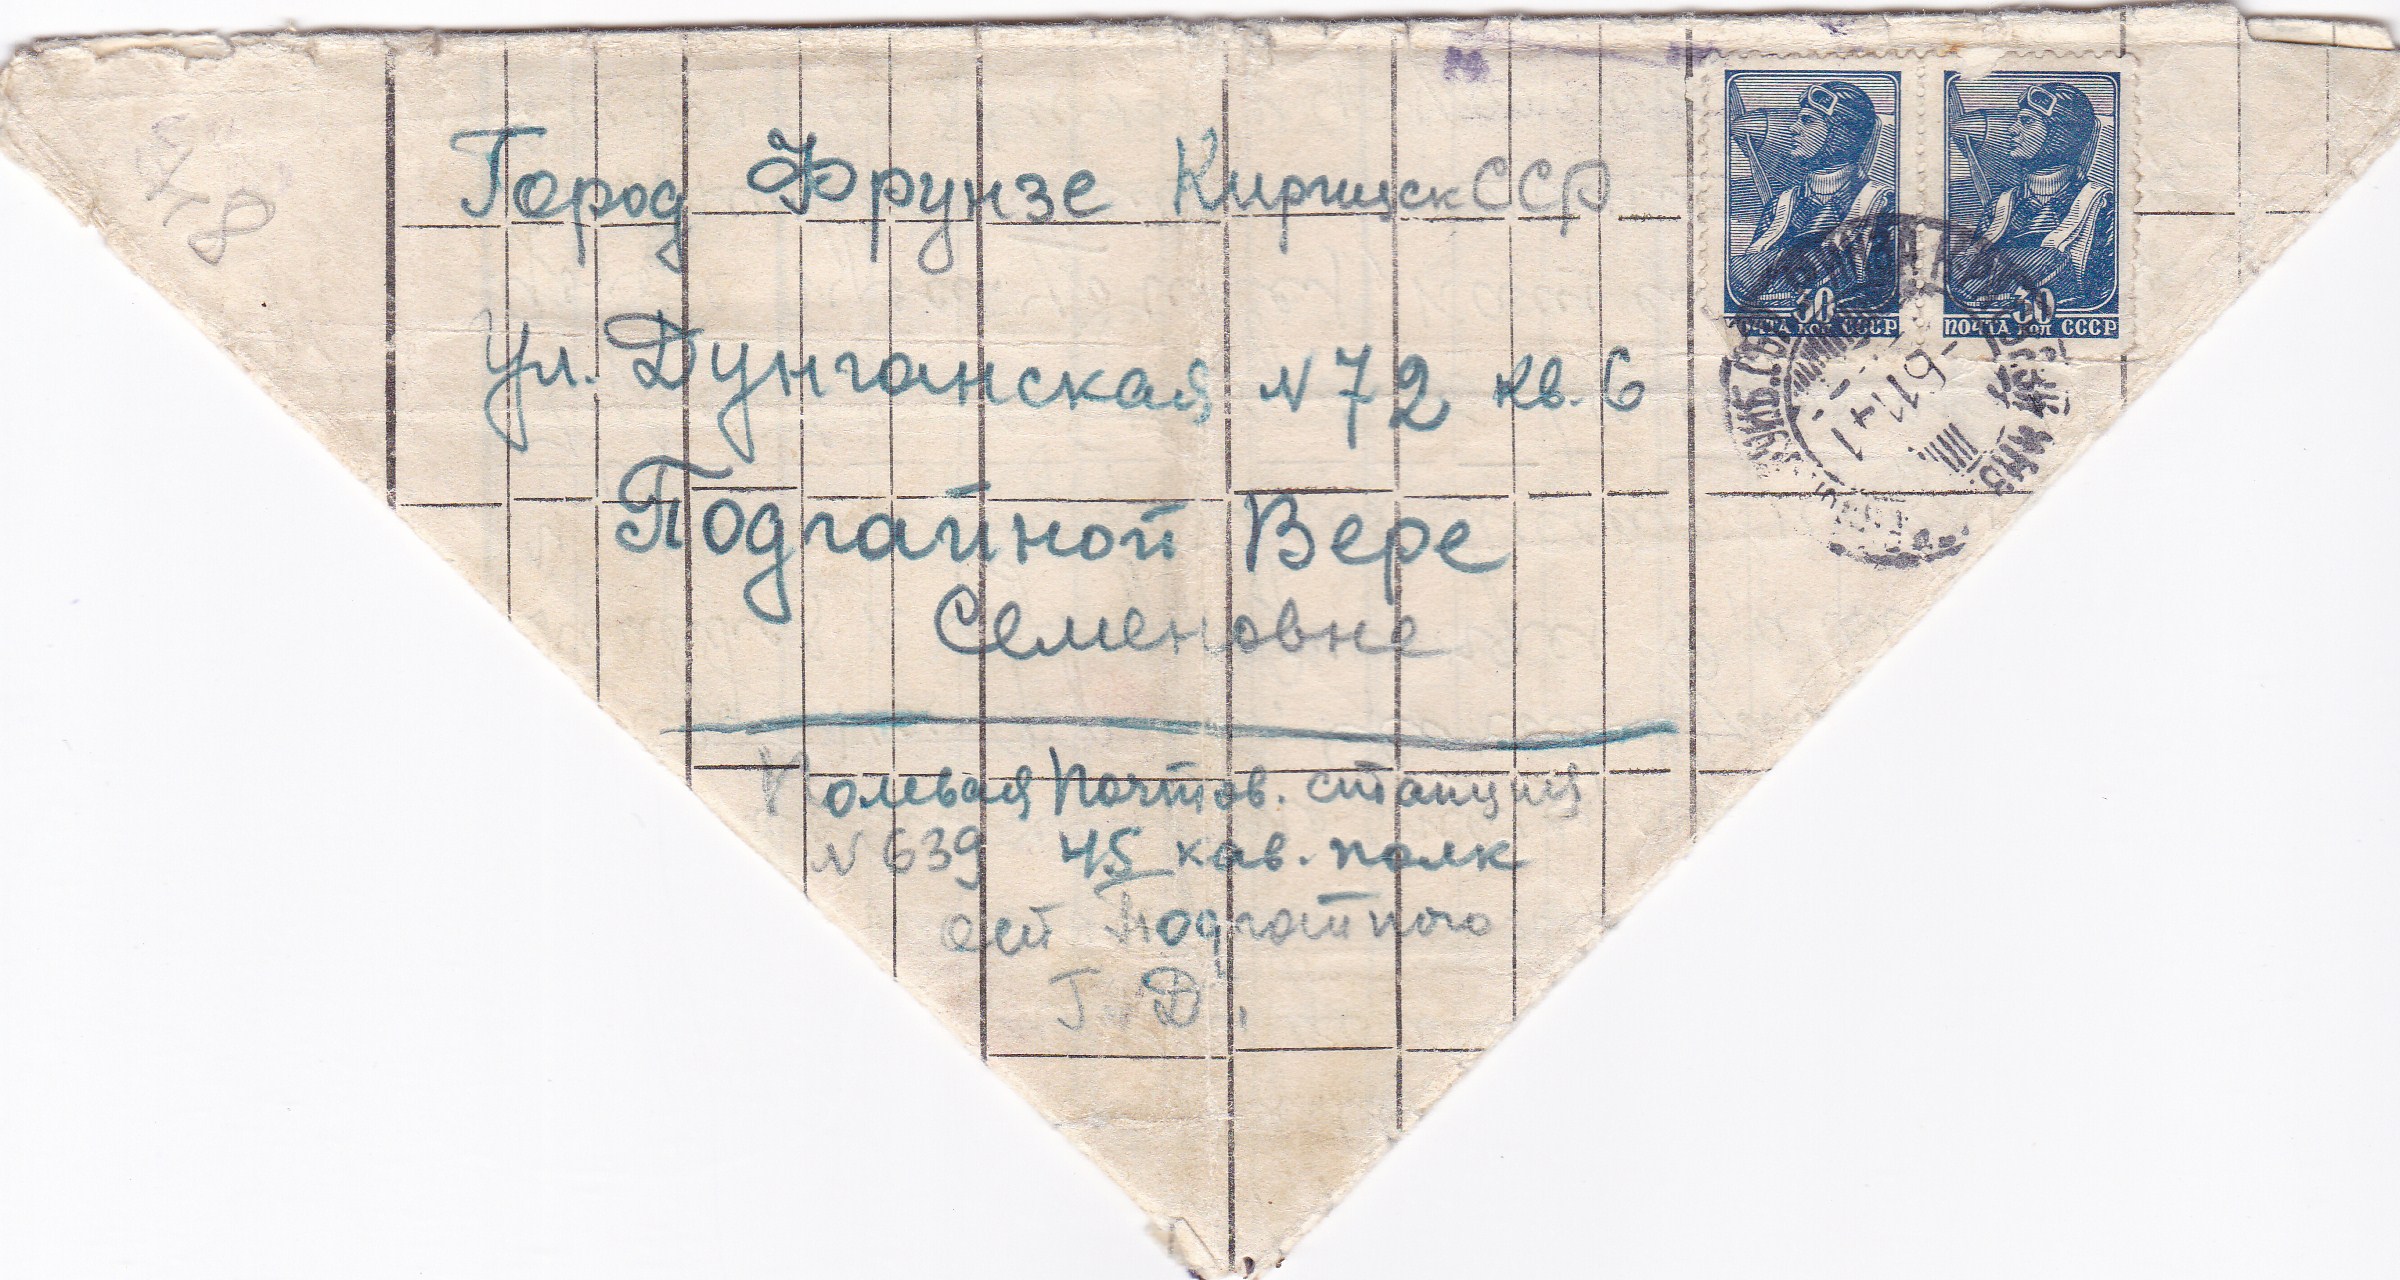 Город Фрунзе Киргизск ССР
ул. Дунганская N 72 кв. 6
Подгайной Вере
Семеновне
Полевая Почтов. станция
N 639 45 кав. полк
от Подгайного
Г. Д.
30
ПОЧТА КОП СССР
30
ПОЧТА КОП СССР